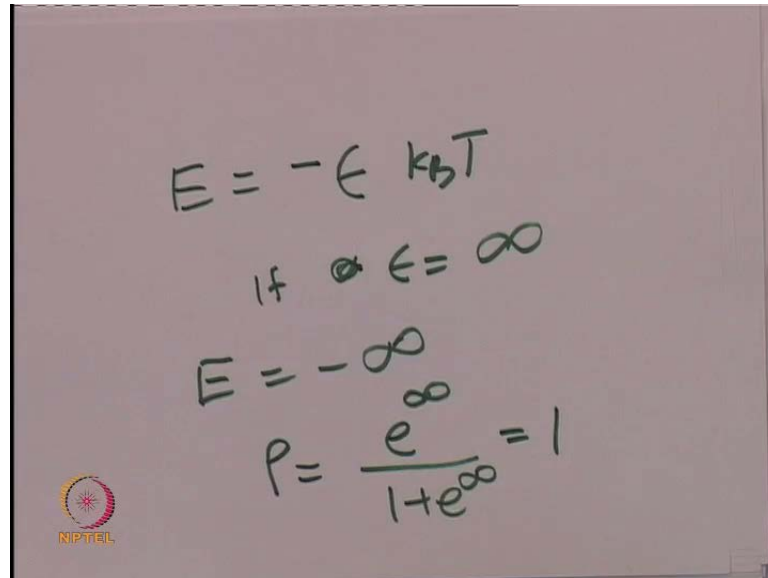 E = -ϵ kBT
If ϵ = ∞
E = -∞
P = e^∞ / 1+e^∞ = 1
NPTEL